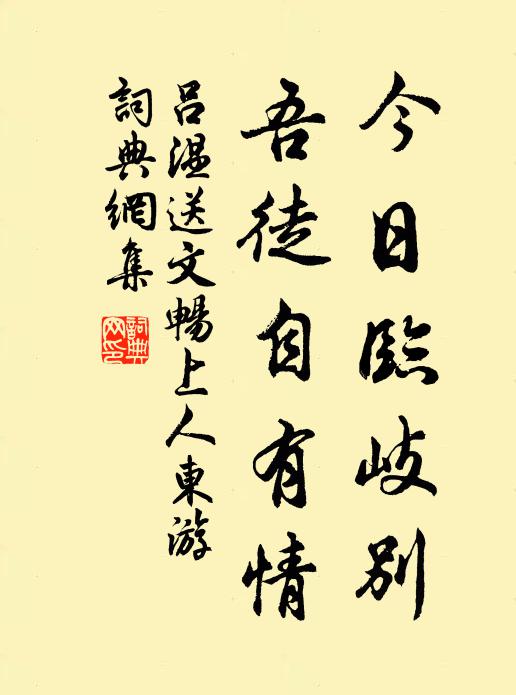 今日臨岐別
吾徒自有情
吕溫送文暢上人東游
詞典網集
詞典網印